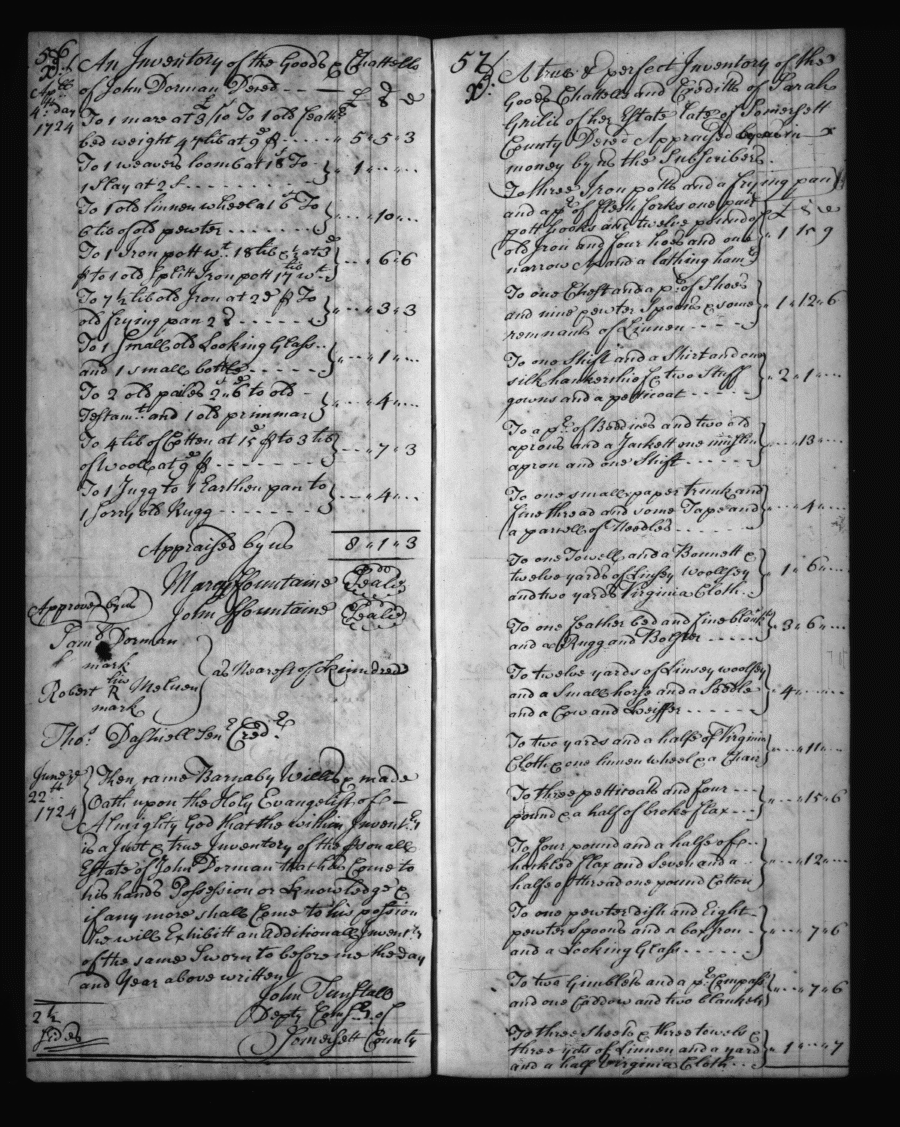 56
Apll
4th day
1724
An Inventory of the Goods & Chattells
of John Dorman Deced - - - £ s d
To 1 mare at 3£/10 To 1 old feather
bed weight 47 lib at 9d - - - - " 5 " 5 " 3
To 1 weavers loomb at 18s To
1 Slay at 2s - - - - - - - - - " 1 " - - " - -
To 1 old linnen wheel at 6s To
6 lib of old pewter - - - - - - - " - - " 10 " - -
To 1 Iron pott wt 18 lib & ½ at 3d
to 1 old Splitt Iron pott 17 lib wt - - " 6 " 6
To 7 ½ lib old Iron at 2d To
old frying pan 2s - - - - - - " - - " 3 " 3
To 1 Small old Looking Glass
and 1 small bottle - - - - - " - - " 1 " - -
To 2 old pales 2s " 6d to old
Testamt and 1 old primmar - - " 4 " - -
To 4 lib of Cotten at 15d to 3 lib
of wooll at 9d - - - - - - - - " 7 " 3
To 1 Jugg to 1 Earthen pan to
1 Sorry old Rugg - - - - - - - " 4 " - -
Appraised by us 8 " 1 " 3
Mary ffountaine Seale
John ffountaine Seale
Approved by us
Saml Dorman
mark
his
Robert R Melven
mark
as Nearest of Kinndred
Thos Dashiell Senr Credr
June ye
22th
1724
Then came Barnaby Willis & made
Oath upon the Holy Evangelist of
Almighty God that the within Inventry
is a Just & true Inventory of the psonall
Estate of John Dorman that has Come to
his hands Possession or Knowledge &
if any more shall Come to his possion
he will Exhibitt an Additionall Inventry
of the same Sworn to before me the day
and Year above written
John Tunstall
Depty Comsry of
Somersett County
2 ½
Sides
57
A true & perfect Inventory of the
Goods Chattells and Creditts of Sarah
of her Estate late of Somersett
County Deced Appraised in
money by us the Subscribers
To three Iron potts and a frying pan
and a pr of flesh forks one pair £ s d
pott hooks and twelve pound of
old Iron and four hoes and one " 1 " 10 " 9
narrow Ax and a lathing hamr
To one Chest and a pr of Shoes
and nine pewter Spoons & some " 1 " 12 " 6
remnants of Linnen - - - - -
To one Shift and a Shirt and one
silk hankershief & two Stuff " 2 " 1 " - -
gowns and a petticoat - - - - -
To a pr of Boddines and two old
aprons and a Jackett one muslin - - " 13 " - -
apron and one Shift - - - - -
To one small paper trunk and
fine thread and some Tape and " - - " 4 " - -
a parcell of Needles - - - - -
To one Towell and a Bonnett &
twelve yards of Linsey Woollsey " 1 " 6 " - -
and two yards Virginia Cloth
To one feather bed and fine blankt
and a Rugg and Bolster - - - - " 3 " 6 " - -
To twelve yards of Linsey woolsey
and a Small horse and a Saddle " 4 " - - " - -
and a Cow and Heiffer - - - -
To two yards and a halfe of Virginia
Cloth & one linnen wheel & a Chair " - - " 11 " - -
To three petticoats and four - -
pound & a half of broke flax - - " - - " 15 " 6
To four pound and a halfe of
hackled flax and Seven and a - - " - - " 12 " - -
halfe of thread one pound Cotton
To one pewter dish and Eight
pewter Spoons and a box Iron - " - - " 7 " 6
and a Looking Glass - - - - -
To two Gimblets and a pr Compass
and one Caddow and two blankets " - - " 7 " 6
To three sheets & three towels &
three yds of Linnen and a yard " 1 " - - " 7
and a half Virginia Cloth - -